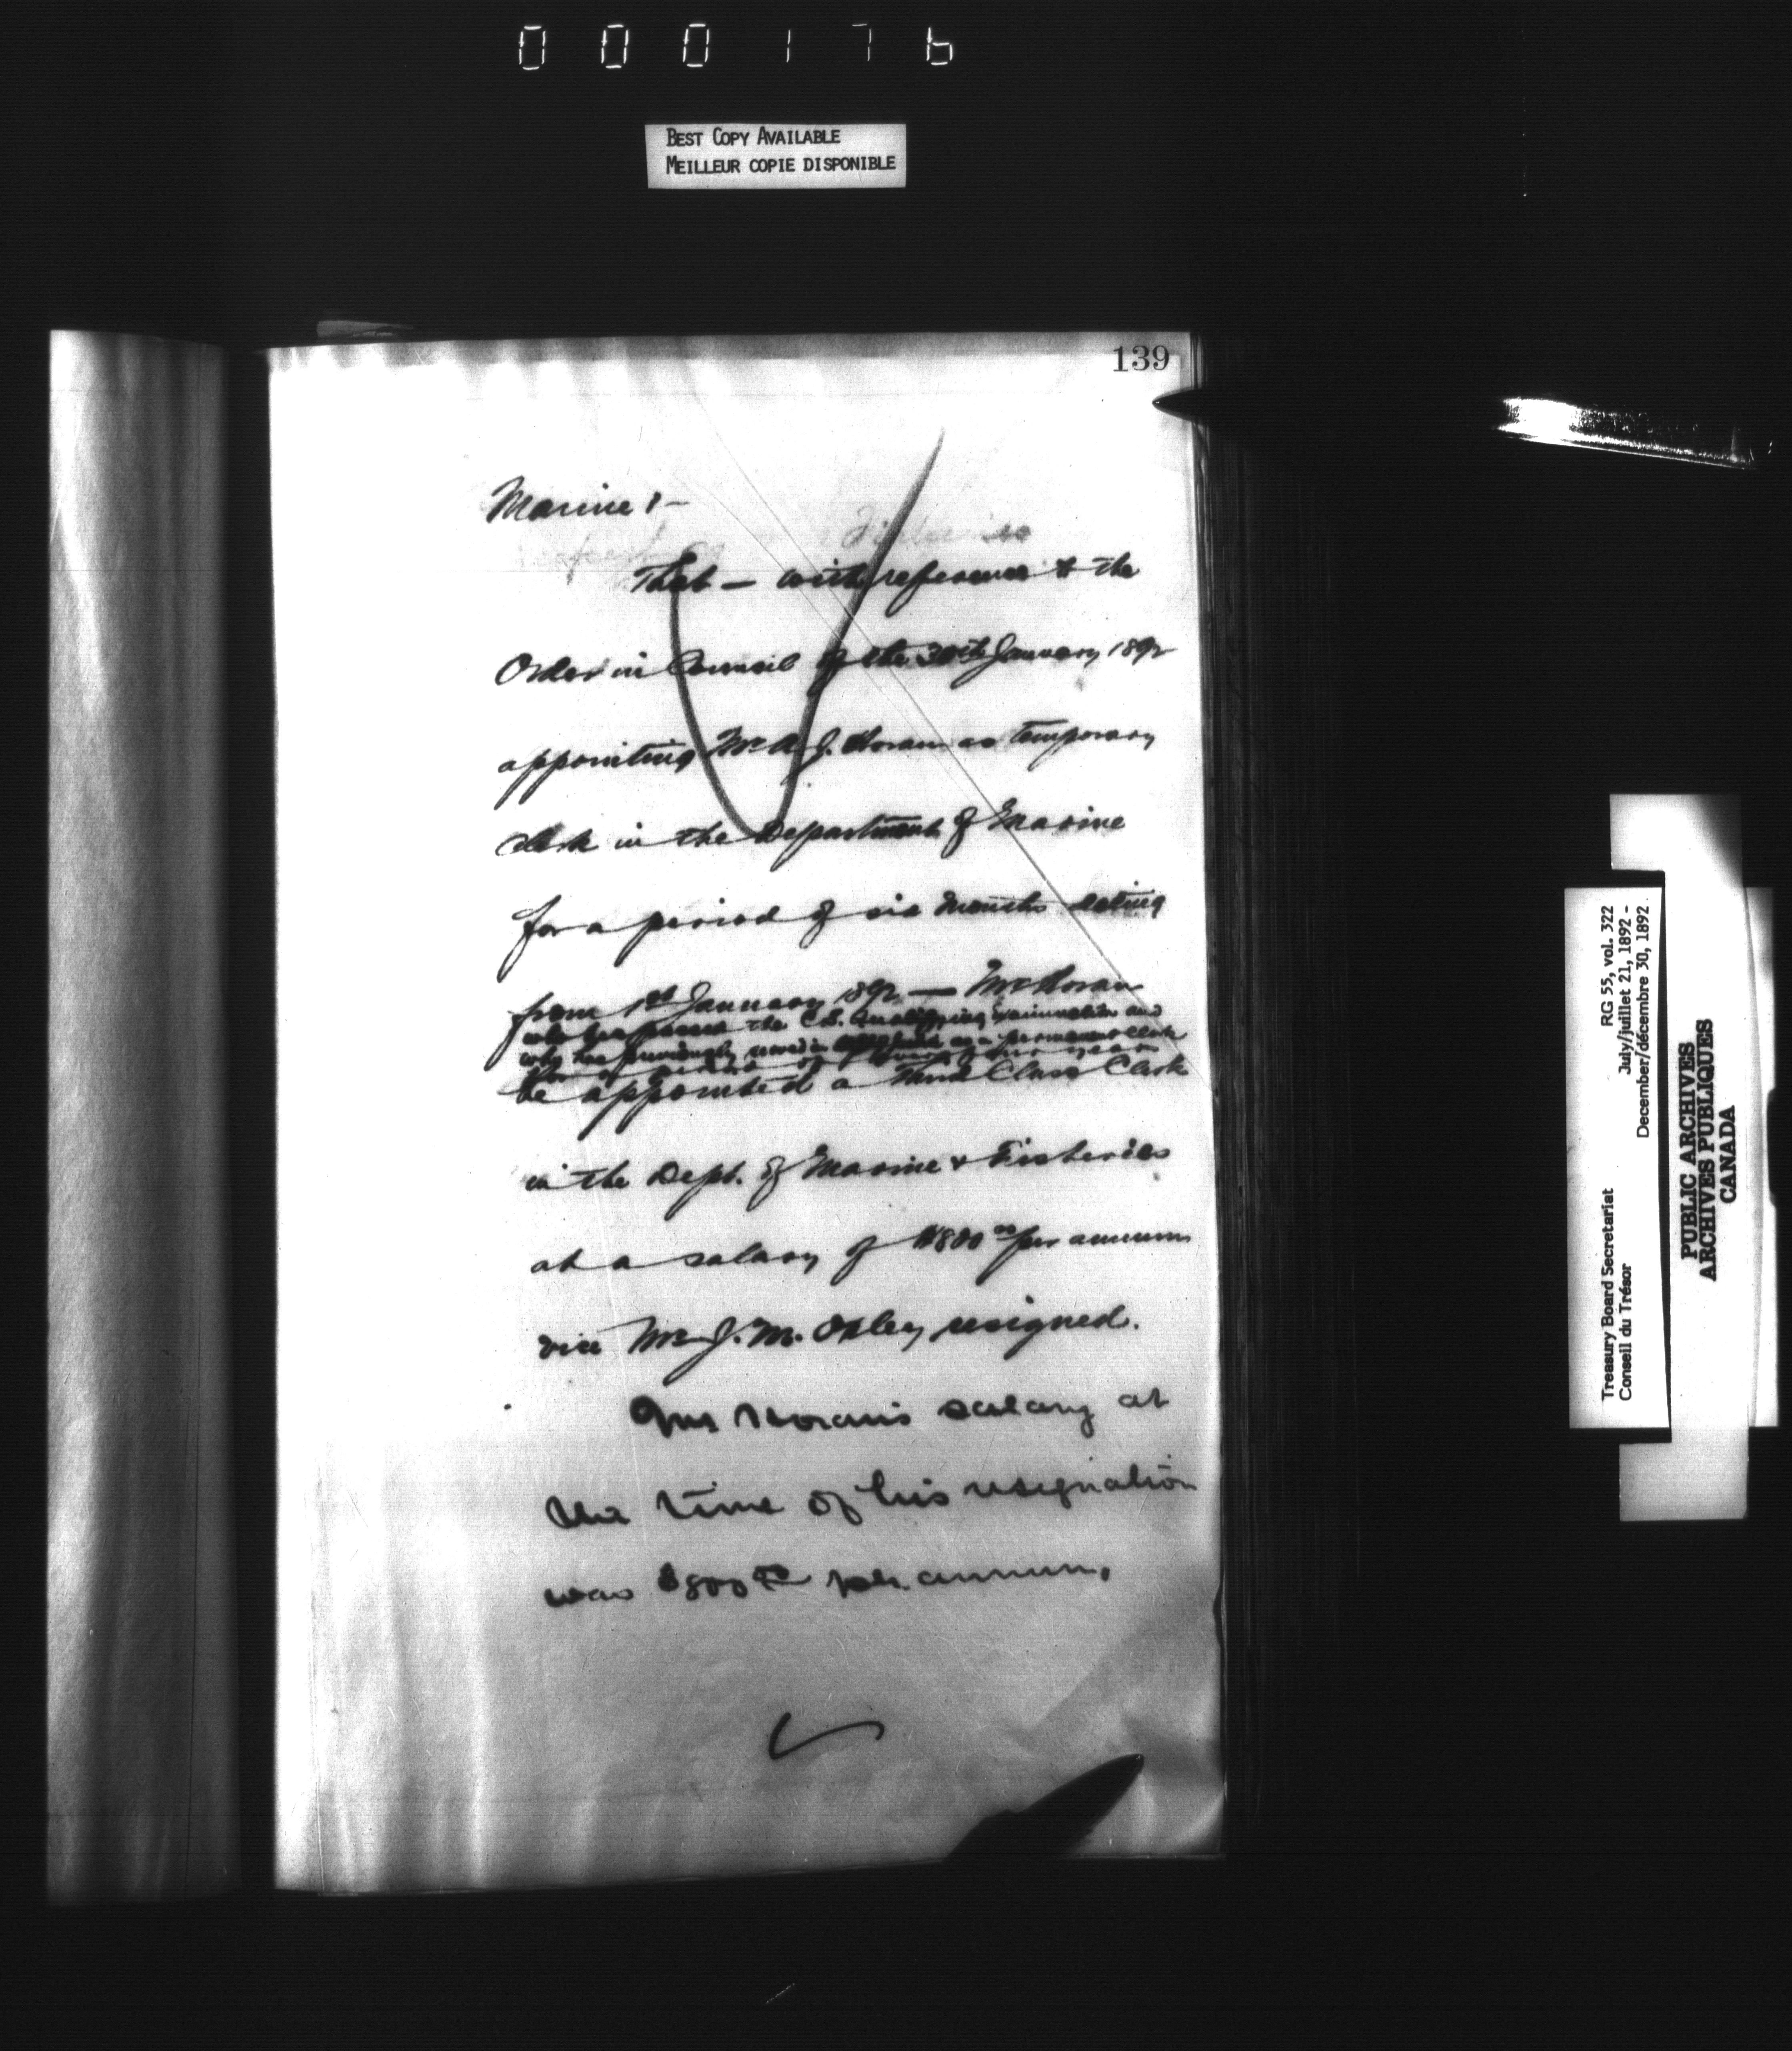 000176
BEST COPY AVAILABLE
MEILLEUR COPIE DISPONIBLE
139
Marine :-
That — with reference to the
Order in Council of the 30th January 1892
appointing Mr A. J. Horan as temporary
clerk in the Department of Marine
for a period of six months dating
from 1st January 1892 — Mr Horan
who has passed the C.S. Qualifying Examination and
who has previously served in as a permanent clerk
for a period of years
be appointed a Third Class Clerk
in the Dept. of Marine & Fisheries
at a salary of $800 00 per annum
vice Mr J. M. Oxley resigned.
Mr Horan's salary at
the time of his resignation
was $800 00 per annum.
RG 55, vol. 322
July/juillet 21, 1892 -
December/décembre 30, 1892
Treasury Board Secretariat
Conseil du Trésor
PUBLIC ARCHIVES
ARCHIVES PUBLIQUES
CANADA